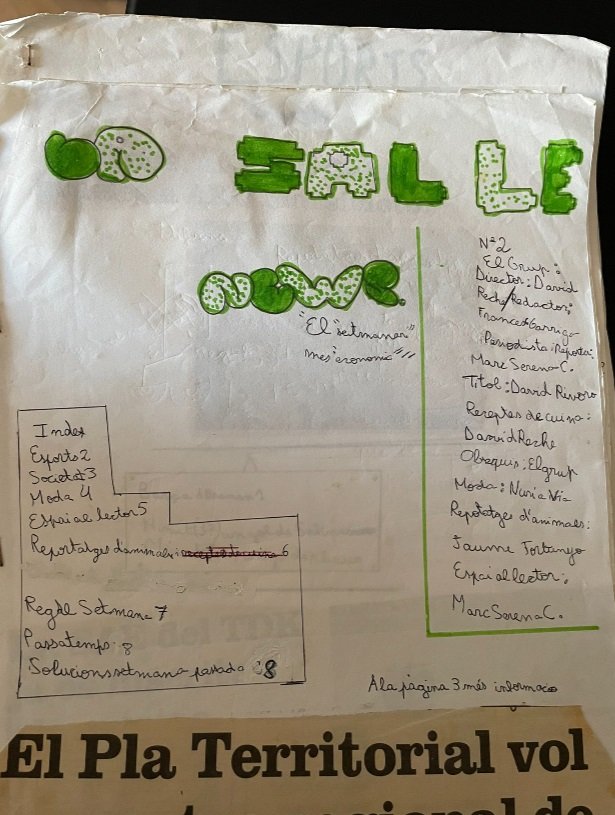 ESPORTS
LA SALLE
NEWS.
Nº2
El Grup:
Director: David
Reche/Redactor:
Francesc Garriga
"El "setmanari"
Periodista i Reporter:
més economic"
Marc Serena C.
Titol: David Rivero
Receptes de cuina:
David Reche
Obsequis: El grup
Moda: Nuria Via
Reportatges d'animals:
Jaume Fortunyo
Espai al lector:
Marc Serena C.
Index
Esports 2
Societat 3
Moda 4
Espai al lector 5
Reportatges d'animals i receptes de cuina 6
Regal Setmana 7
Passatemps: 8
Solucions setmana passada: 8
A la pàgina 3 més informacio
El Pla Territorial vol